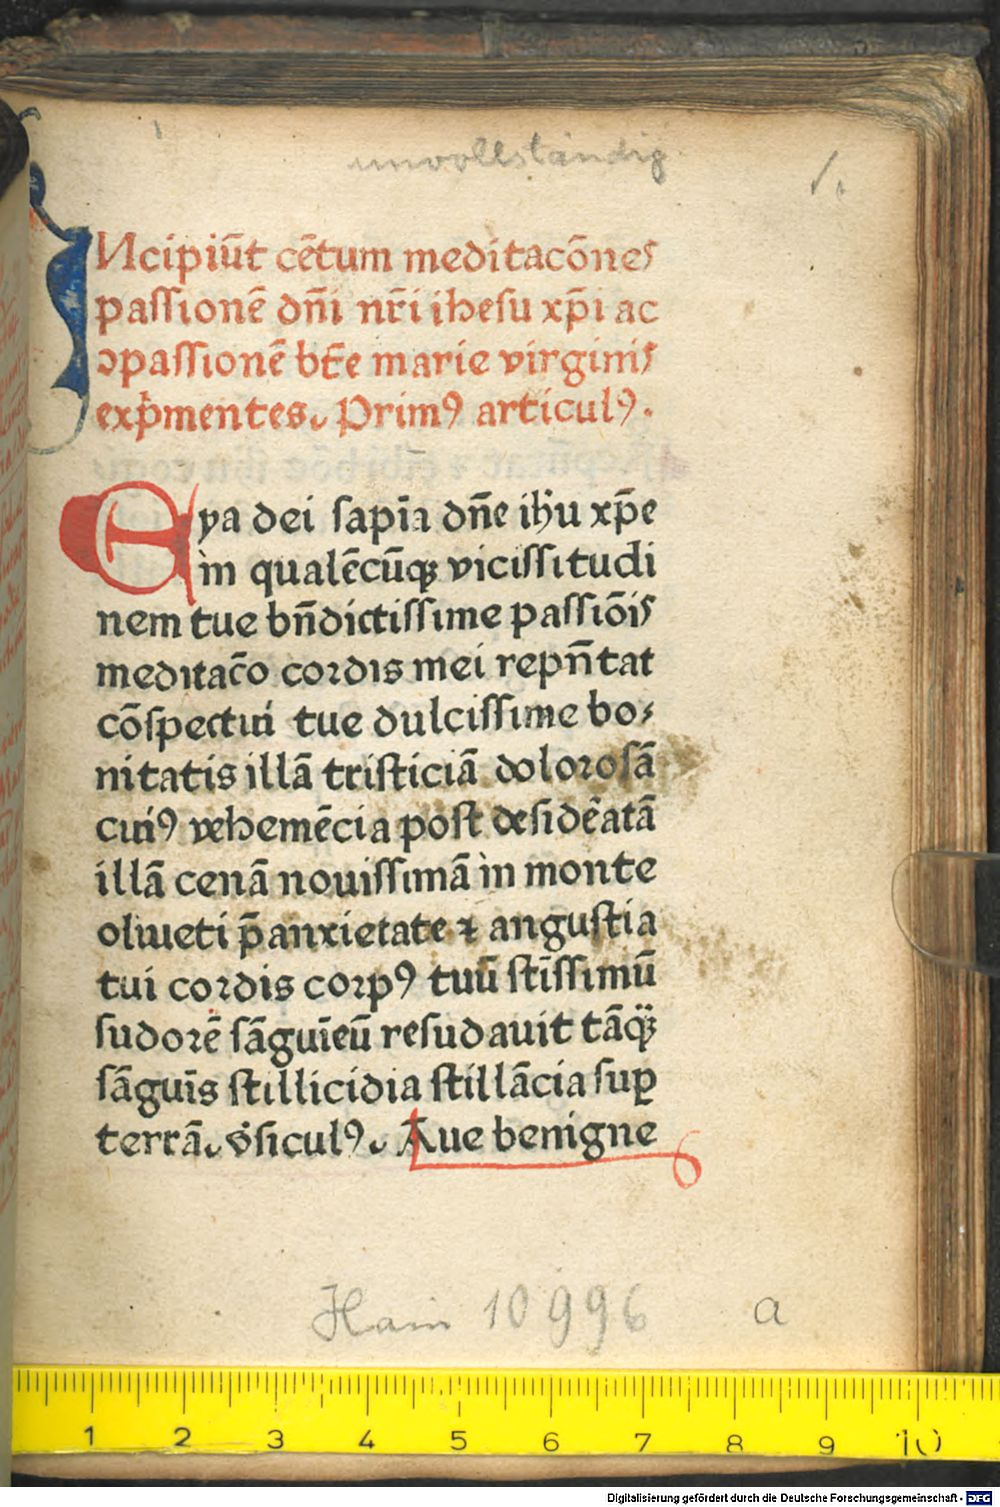 unvollständig
1.
INcipiūt cētum meditacōnes
passionē dn̄i nr̄i ihesu xp̄i ac
ꝯpassionē bt̄e marie virginis
exp̄mentes. Primꝰ articulꝰ.
Eya dei sapīa dn̄e ih̄u xp̄e
in qualēcūqꝫ vicissitudi
nem tue bn̄dictissime passiōis
meditac̄o cordis mei repn̄tat
cōspectui tue dulcissime bo⸗
nitatis illā tristiciā dolorosā
cuiꝰ vehemēcia post desidēatā
illā cenā nouissimā in monte
oliueti p̄ anxietate ⁊ angustia
tui cordis corpꝰ tuū st̄issimū
sudorē sāguīeū resudauit tāqꝫ̄
sāguīs stillicidia stillācia suꝑ
terrā. v̓siculꝰ. Aue benigne
Hain 10996
a
1 2 3 4 5 6 7 8 9 10
Digitalisierung gefördert durch die Deutsche Forschungsgemeinschaft - DFG